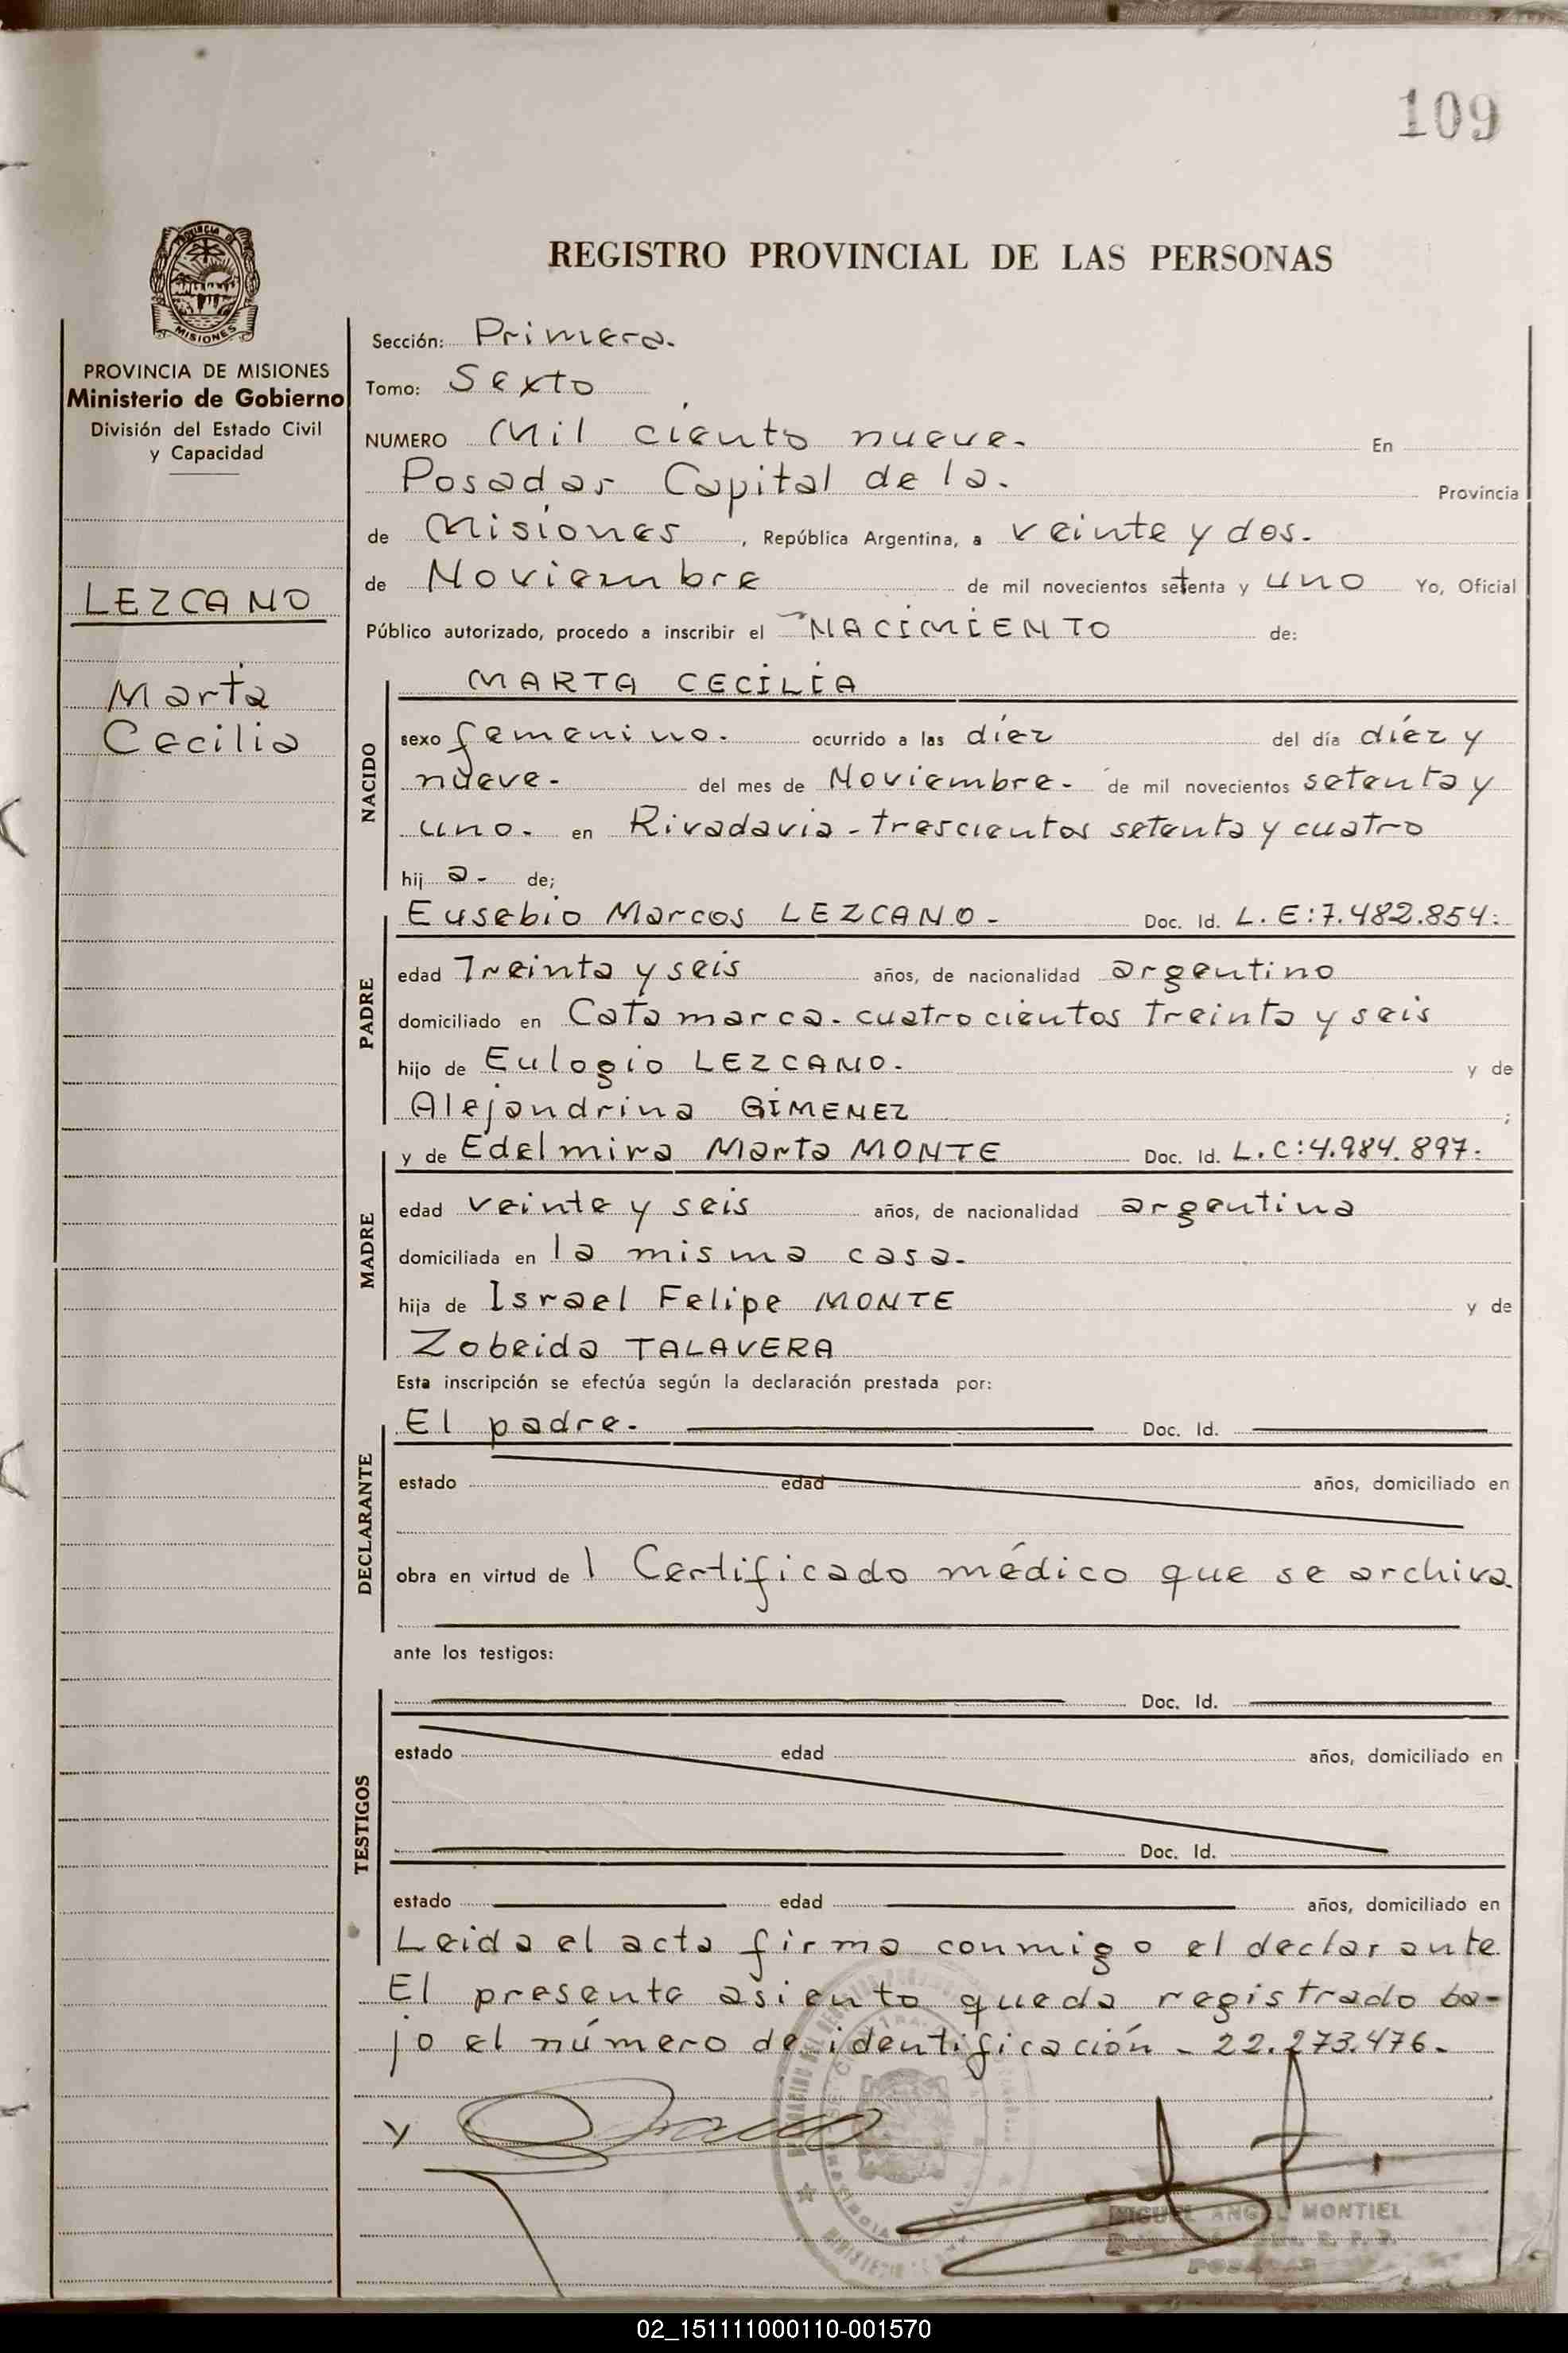 109
REGISTRO PROVINCIAL DE LAS PERSONAS
PROVINCIA DE
MISIONES
PROVINCIA DE MISIONES
Ministerio de Gobierno
División del Estado Civil
y Capacidad
LEZCANO
Marta
Cecilia
Sección: Primera.
Tomo: Sexto
NUMERO Mil ciento nueve. En
Posadas Capital de la. Provincia
de Misiones, República Argentina, a veinte y dos.
de Noviembre de mil novecientos setenta y uno Yo, Oficial
Público autorizado, procedo a inscribir el NACIMIENTO de:
NACIDO
MARTA CECILIA
sexo femenino. ocurrido a las diez del día diez y
nueve. del mes de Noviembre. de mil novecientos setenta y
uno. en Rivadavia - trescientos setenta y cuatro
hij a. de;
PADRE
Eusebio Marcos LEZCANO - Doc. Id. L.E:7.482.854:
edad Treinta y seis años, de nacionalidad argentino
domiciliado en Catamarca. cuatrocientos treinta y seis
hijo de Eulogio LEZCANO. y de
Alejandrina GIMENEZ ;
MADRE
y de Edelmira Marta MONTE Doc. Id. L.C:4.984.897.
edad veinte y seis años, de nacionalidad argentina
domiciliada en la misma casa.
hija de Israel Felipe MONTE y de
Zobeida TALAVERA
Esta inscripción se efectúa según la declaración prestada por:
DECLARANTE
El padre. Doc. Id.
estado edad años, domiciliado en
obra en virtud de 1 Certificado médico que se archiva.
ante los testigos:
TESTIGOS
Doc. Id.
estado edad años, domiciliado en
Doc. Id.
estado edad años, domiciliado en
Leida el acta firma conmigo el declarante.
El presente asiento queda registrado ba-
jo el número de identificación - 22.273.476.
MIGUEL ANGEL MONTIEL
POSADAS
02_151111000110-001570